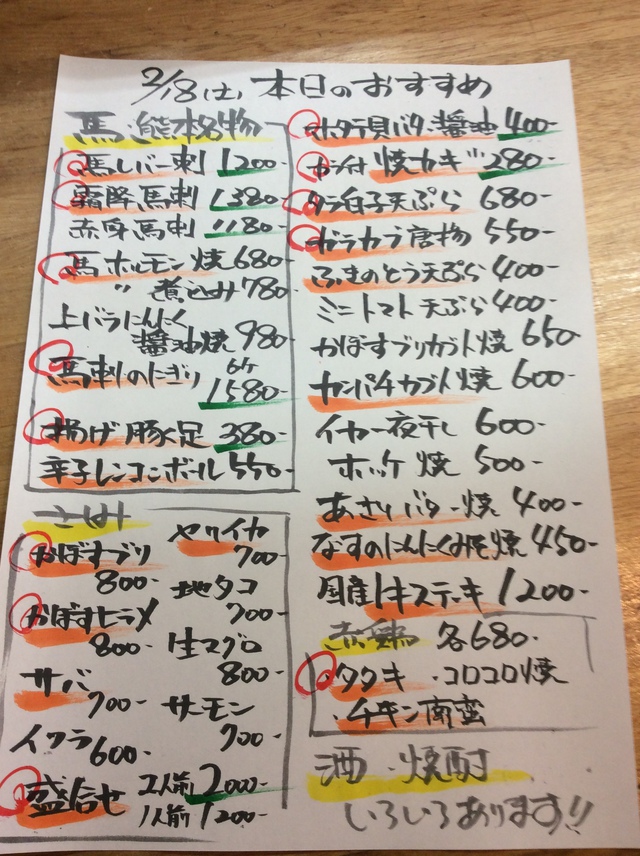 2/18(土) 本日のおすすめ
馬 熊本名物
馬レバー刺 1200-
霜降馬刺 1380-
赤身馬刺 1180-
馬ホルモン焼 680-
〃 煮込み 780-
上バラにんにく
醤油焼 980-
馬刺のにぎり 6ケ
1580-
揚げ豚足 380-
辛子レンコンボール 550-
さしみ
かぼすブリ
800-
かぼすヒラメ
800-
サバ
700-
イクラ 600-
ヤリイカ
700-
地タコ
700-
生マグロ
800-
サーモン
700-
盛合せ 2人前 2000-
1人前 1200-
ホタテ貝バター醤油 400-
カラ付 焼カキ 280-
タラ白子天ぷら 680-
ガラカブ唐揚 550-
ふきのとう天ぷら 400-
ミニトマト天ぷら 400-
かぼすブリカブト焼 650
カンパチカブト焼 600-
イカ一夜干し 600-
ホッケ焼 500-
あさりバター焼 400-
なすのにんにくみそ焼 450-
国産牛ステーキ 1200-
赤鶏 各680-
・タタキ ・コロコロ焼
・チキン南蛮
酒・焼酎
いろいろあります!!